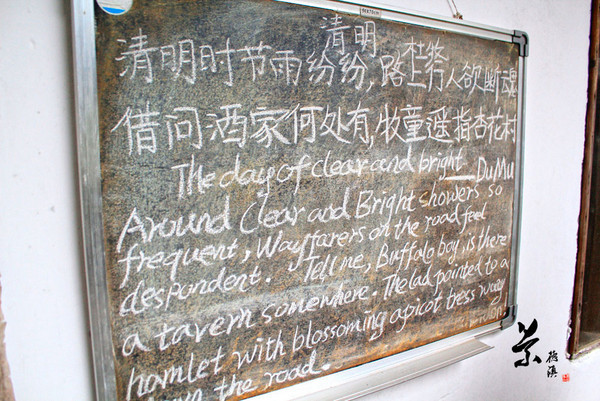 清明 杜牧
清明时节雨纷纷,路上行人欲断魂
借问酒家何处有,牧童遥指杏花村
The day of clear and bright —DuMu
Around Clear and Bright showers so
frequent, Wayfarers on the road feel
despondent. Tell me, Buffalo boy, is there
a tavern somewhere. The lad pointed to a
hamlet with blossoming apicot tress way
down the road.